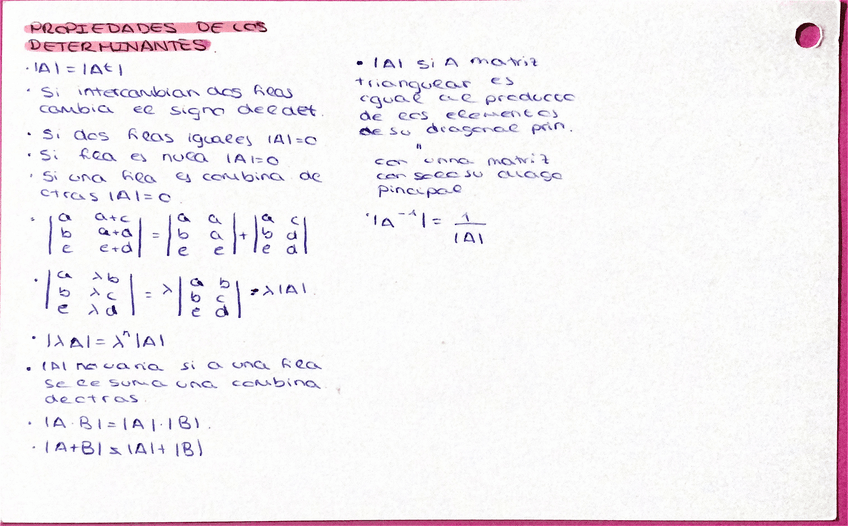 PROPIEDADES DE LOS
DETERMINANTES.
· |A| = |At|
· Si intercambian dos filas
cambia el signo del det.
· Si dos filas iguales |A|=0
· Si fila es nula |A|=0
· Si una fila es combina de
otras |A|=0.
· |a a+c| = |a a| + |a c|
|b a+d| |b a| |b d|
|e e+d| |e e| |e d|
· |a λb| = λ |a b| = λ|A|.
|b λc| |b c|
|e λd| |e d|
· |λA| = λⁿ|A|
· |A| no varia si a una fila
se le suma una combina
de otras.
· |A·B| = |A|·|B|.
· |A+B| |A|+|B|
· |A| si A matriz
triangular es
igual al producto
de los elementos
de su diagonal prin.
"
con unna matriz
con solo su diago
pincipal
· |A⁻¹| = 1/|A|